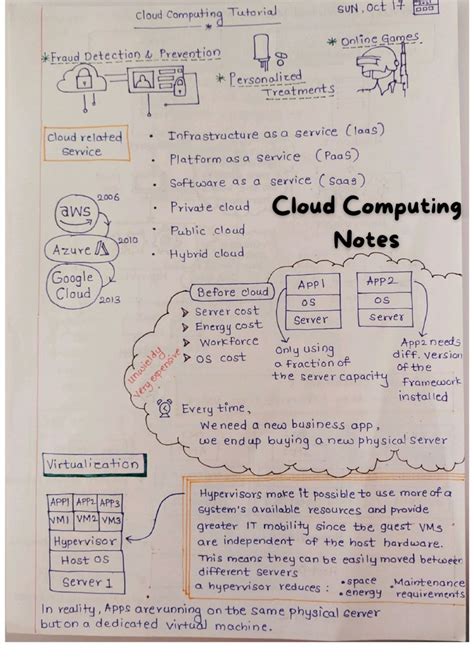 Cloud Computing Tutorial
SUN, Oct 17
* Fraud Detection & Prevention
* Personalized
Treatments
* Online Games
Cloud related
service
• Infrastructure as a service (IaaS)
• Platform as a service (PaaS)
• Software as a service (SaaS)
• Private cloud
• Public cloud
• Hybrid cloud
aws
2006
Azure
2010
Google
Cloud
2013
Cloud Computing
Notes
Before cloud
➤ Server cost
➤ Energy cost
➤ Workforce
➤ OS cost
unwieldy
very expensive
App1
OS
Server
App2
OS
Server
Only using
a fraction of
the server capacity
App2 needs
diff. version
of the
framework
installed
Every time,
We need a new business app,
we end up buying a new physical server
Virtualication
APP1 APP2 APP3
VM1 VM2 VM3
Hypervisor
Host OS
Server 1
Hypervisors make it possible to use more of a
system's available resources and provide
greater IT mobility since the guest VMs
are independent of the host hardware.
This means they can be easily moved between
different servers
a hypervisor reduces : • space • Maintenance
• energy requirements
In reality, Apps are running on the same physical server
but on a dedicated virtual machine.